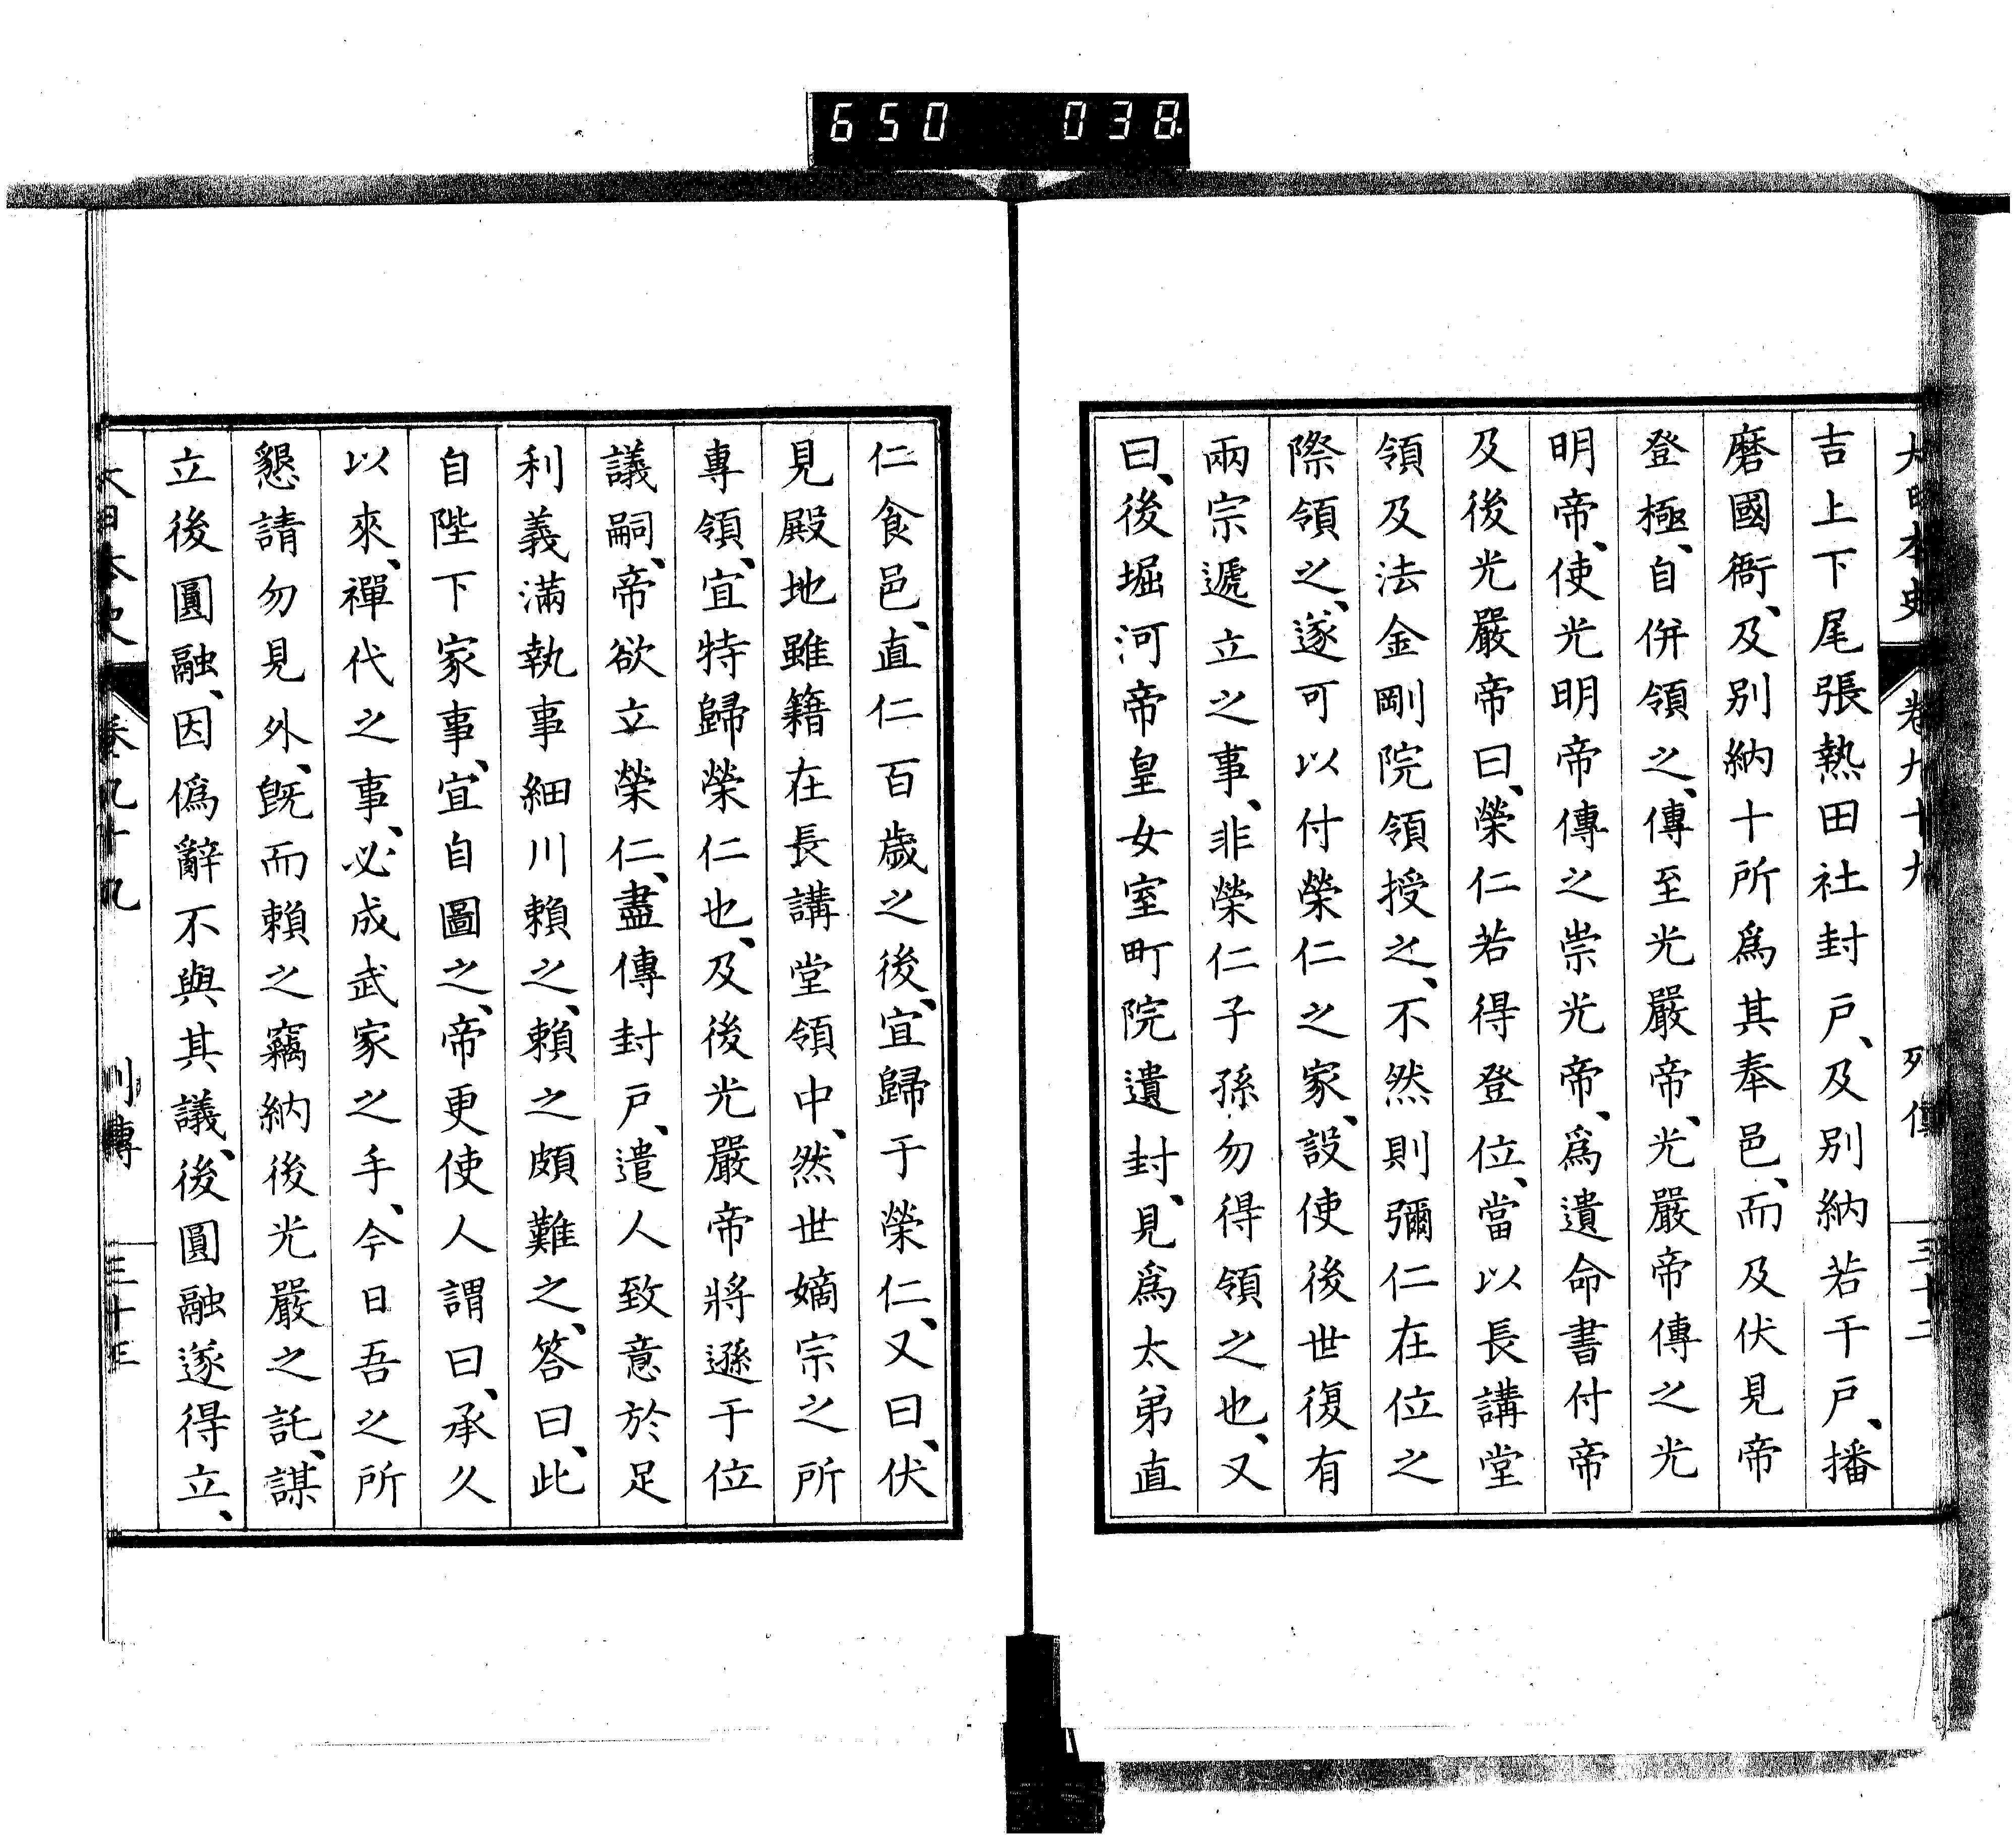 650 038
大日本史 卷九十九 列傳 三十二
吉上下尾張熱田社封戸、及別納若干戸、播
磨國衙、及別納十所爲其奉邑、而及伏見帝
登極、自併領之、傳至光嚴帝、光嚴帝傳之光
明帝、使光明帝傳之崇光帝、爲遺命書付帝
及後光嚴帝曰、榮仁若得登位、當以長講堂
領及法金剛院領授之、不然則彌仁在位之
際領之、遂可以付榮仁之家、設使後世復有
兩宗遞立之事、非榮仁子孫勿得領之也、又
曰、後堀河帝皇女室町院遺封、見爲太弟直
仁食邑、直仁百歲之後、宜歸于榮仁、又曰、伏
見殿地雖籍在長講堂領中、然世嫡宗之所
專領、宜特歸榮仁也、及後光嚴帝將遜于位
議嗣、帝欲立榮仁、盡傳封戸、遣人致意於足
利義滿執事細川賴之、賴之頗難之、答曰、此
自陛下家事、宜自圖之、帝更使人謂曰、承久
以來、禪代之事、必成武家之手、今日吾之所
懇請勿見外、既而賴之竊納後光嚴之託、謀
立後圓融、因僞辭不與其議、後圓融遂得立、
大日本史 卷九十九 列傳 三十三